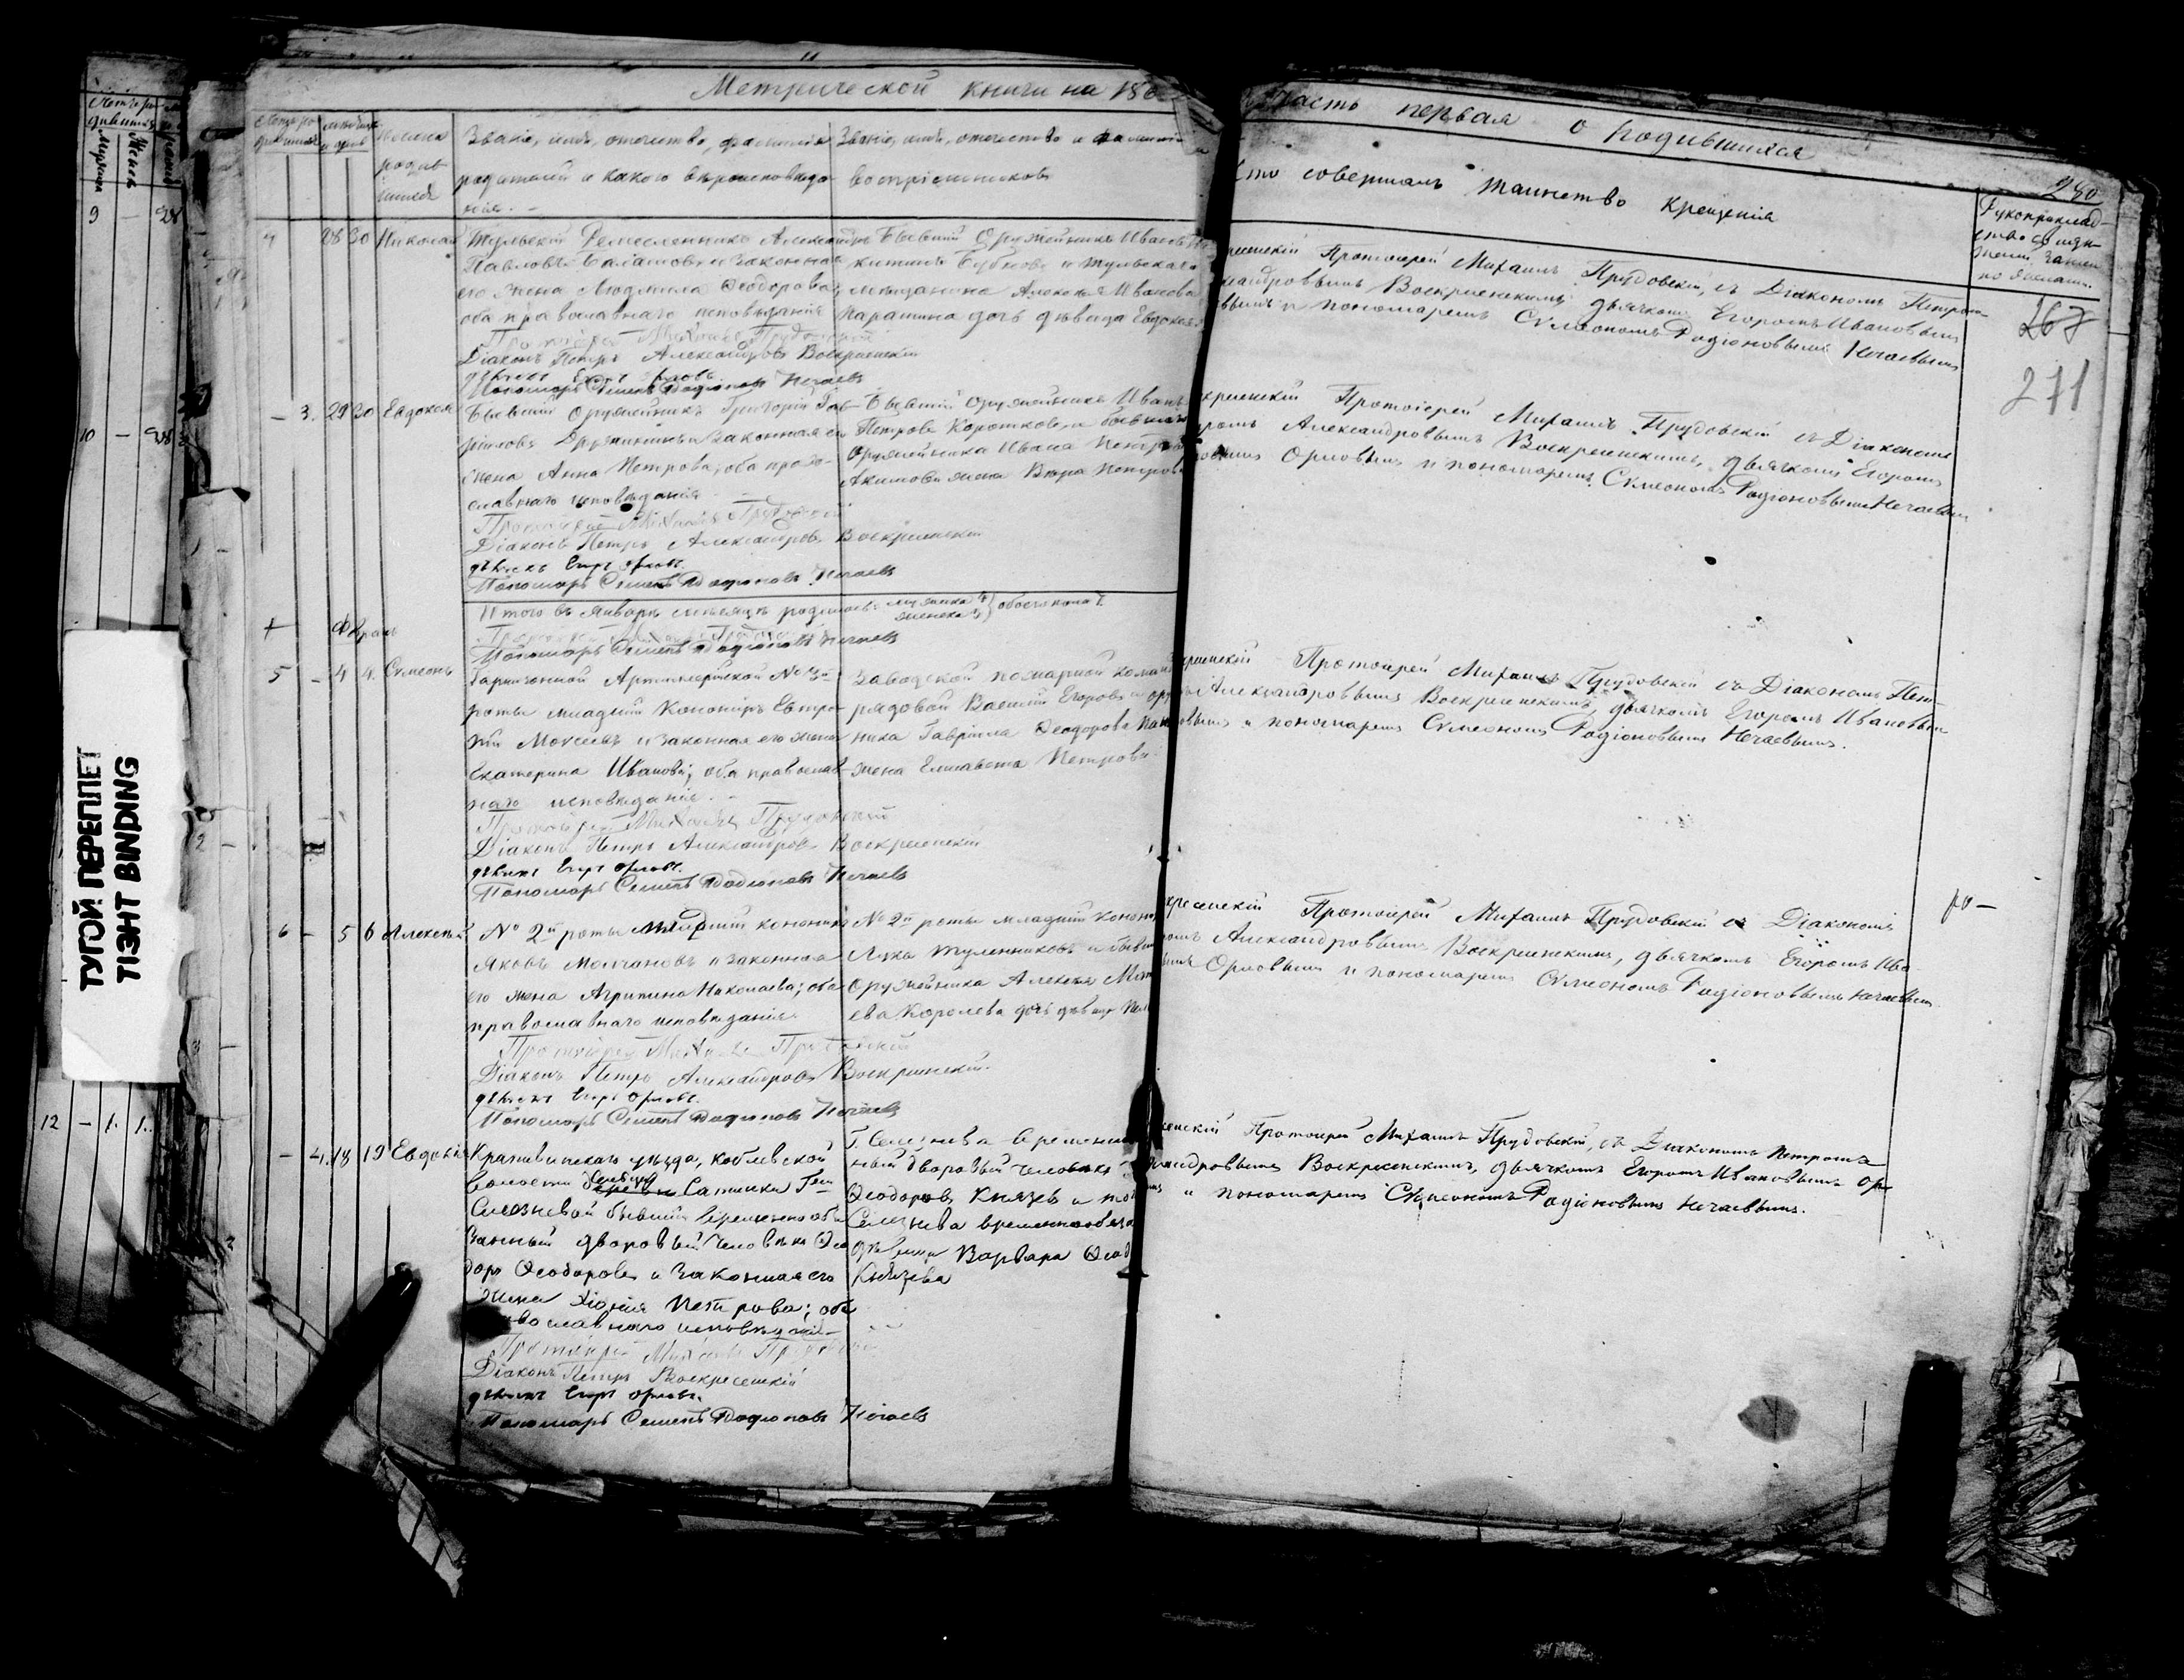 Метрической книги на 186
часть первая о родившихся
280
Званіе, имя, отчество, фамилія
родителей и какого вѣроисповѣда
нія.
Званіе, имя, отчество и фамилія
воспріемниковъ
Кто совершалъ таинство крещенія
Мужеска
Женск
имена
родив
шихся
9 — 28
10 — 28
12 — 1. 1.
4 28 30 Николай
Тульскій Ремесленникъ Александръ
Павловъ Балашовъ и законная
его жена Людмила Ѳеодорова;
оба православнаго исповѣданія
Протоіерей Михаилъ Прудовскій
Діаконъ Петръ Александровъ Воскресенскій
дьячекъ Егоръ Орловъ
Пономарь Семенъ Родіоновъ Нечаевъ
Бывшій Оружейникъ Иванъ
китинъ и тульскаго
мѣщанина Алексѣя Иванова
Парашина дочь дѣвица Евдокія
Протоіерей Михаилъ Прудовскій, съ Діакономъ Петромъ
Воскресенскимъ, дьячкомъ Егоромъ Ивановымъ
и пономаремъ Симеономъ Родіоновымъ Нечаевымъ
267
271
— 3. 29 30 Евдокія
Бывшій Оружейникъ Григорій Гав-
ріиловъ Дружининъ и законная его
жена Анна Петрова; оба право-
славнаго исповѣданія
Протоіерей Михаилъ Прудовскій
Діаконъ Петръ Александровъ Воскресенскій
дьячекъ Егоръ Орловъ.
Пономарь Семенъ Родіоновъ Нечаевъ
Бывшій оружейникъ Иванъ
Петровъ Коротковъ, и бывшаго
Оружейника Ивана Петрова
Акимова жена Вѣра Петрова
Протоіерей Михаилъ Прудовскій съ Діакономъ
Александровымъ Воскресенскимъ, дьячкомъ Егоромъ
Орловымъ и пономаремъ Симеономъ Родіоновымъ Нечаевымъ
Итого въ Январѣ мѣсяцѣ родилось: мужеска 4
женска 3 } обоего пола 7.
Пономарь Семенъ Родіоновъ Нечаевъ
5 — 4 4. Симеонъ
Гарнизонной Артиллерійской № 3й
роты младшій Канониръ Евтро-
пій Моисеевъ и законная его жена
Екатерина Иванова; оба православ-
наго исповѣданія.
Протоіерей Михаилъ Прудовскій
Діаконъ Петръ Александровъ Воскресенскій
дьячекъ Егоръ Орловъ.
Пономарь Семенъ Родіоновъ Нечаевъ
Заводской пожарной коман
рядовой Василій Егоровъ и оруж
ника Гавріила Ѳеодорова
жена Елисавета Петрова
Протоіерей Михаилъ Прудовскій съ Діакономъ Пет-
Александровымъ Воскресенскимъ, дьячкомъ Егоромъ Ивановымъ
и пономаремъ Симеономъ Родіоновымъ Нечаевымъ.
6 — 5 6 Алексѣй
№ 2й роты младшій канониръ
Яковъ Молчановъ и законная
его жена Агрипина Николаева; оба
православнаго исповѣданія.
Протоіерей Михаилъ Прудовскій
Діаконъ Петръ Александровъ Воскресенскій.
дьячекъ Егоръ Орловъ.
Пономарь Семенъ Родіоновъ Нечаевъ
№ 2й роты младшій канони
Лука Туленниковъ и бывш
Оружейника Алексѣя Мат
ева Королева дочь дѣвица
Протоіерей Михаилъ Прудовскій съ Діакономъ
Александровымъ Воскресенскимъ, дьячкомъ Егоромъ Ива-
Орловымъ и пономаремъ Симеономъ Родіоновымъ Нечаевымъ
— 4. 18 19 Евдокія
Крапивенскаго уѣзда,
волости Сатинки Гжи
Селезневой бывшій временнообя
занный дворовый человѣкъ Ѳео
доръ Ѳеодоровъ и законная его
жена Хіонія Петрова; оба
православнаго исповѣданія
Протоіерей Михаилъ Прудовскій
Діаконъ Петръ Воскресенскій
дьячекъ Егоръ Орловъ.
Пономарь Семенъ Родіоновъ Нечаевъ
Г. Селезнева временно
ный дворовый человѣкъ
Ѳеодоровъ Князевъ и
Селезнева временнообяза
дѣвица Варвара Ѳеод
Князева
Протоіерей Михаилъ Прудовскій, съ Діакономъ Петромъ
Воскресенскимъ, дьячкомъ Егоромъ Ивановымъ Ор-
и пономаремъ Симеономъ Родіоновымъ Нечаевымъ.
ТУГОЙ ПЕРЕПЛЕТ
TIGHT BINDING